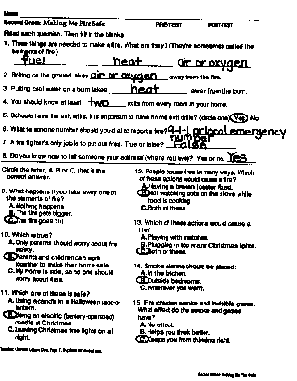 Name
Second Grade: Making Me Fire Safe PRETEST POSTTEST
Read each question. Then fill in the blanks.
1. Three things are needed to make a fire. What are they? (They're sometimes called the
elements of fire.)
fuel heat air or oxygen
2. Rolling on the ground takes air or oxygen away from the fire.
3. Putting cool water on a burn takes heat away from the burn.
4. You should know at least two exits from every room in your home.
5. (circle one) Yes No
6. What is the number you should call to report a fire? 9-1-1 or local emergency
number
7. A fire fighter's only job is to put out fires. True or false? False
8. Do you know how to tell someone your address (where you live)? Yes or no. Yes
Circle the letter, A, B or C, that is the
correct answer.
9. What happens if you take away one of
the elements of fire?
A. Nothing happens.
B. The fire gets bigger.
C. The fire goes out.
10. Which is true?
A. Only parents should worry about fire
safety.
B. Parents and children can work
together to make their home safe.
C. My home is safe, so no one should
worry about fires.
11. Which one of these is safe?
A. Using a candle in a Halloween jack-o-
lantern.
B. Using an electric (battery-operated)
candle at Christmas.
C. Leaving Christmas tree lights on all
night.
12. People cause fires in many ways. Which
of these actions would cause a fire?
A. Having a broken heater fixed.
B. Not watching pots on the stove while
food is cooking.
C. Both of these.
13. Which of these actions would cause a
fire?
A. Playing with matches.
B. Plugging in too many Christmas lights.
C. Both of these.
14. Smoke alarms should be placed:
A. In the kitchen.
B. Outside bedrooms.
C. Wherever you want.
15.
What effect do the smoke and gases
have?
A. No effect.
B. Helps you think better.
C. Keeps you from thinking right.